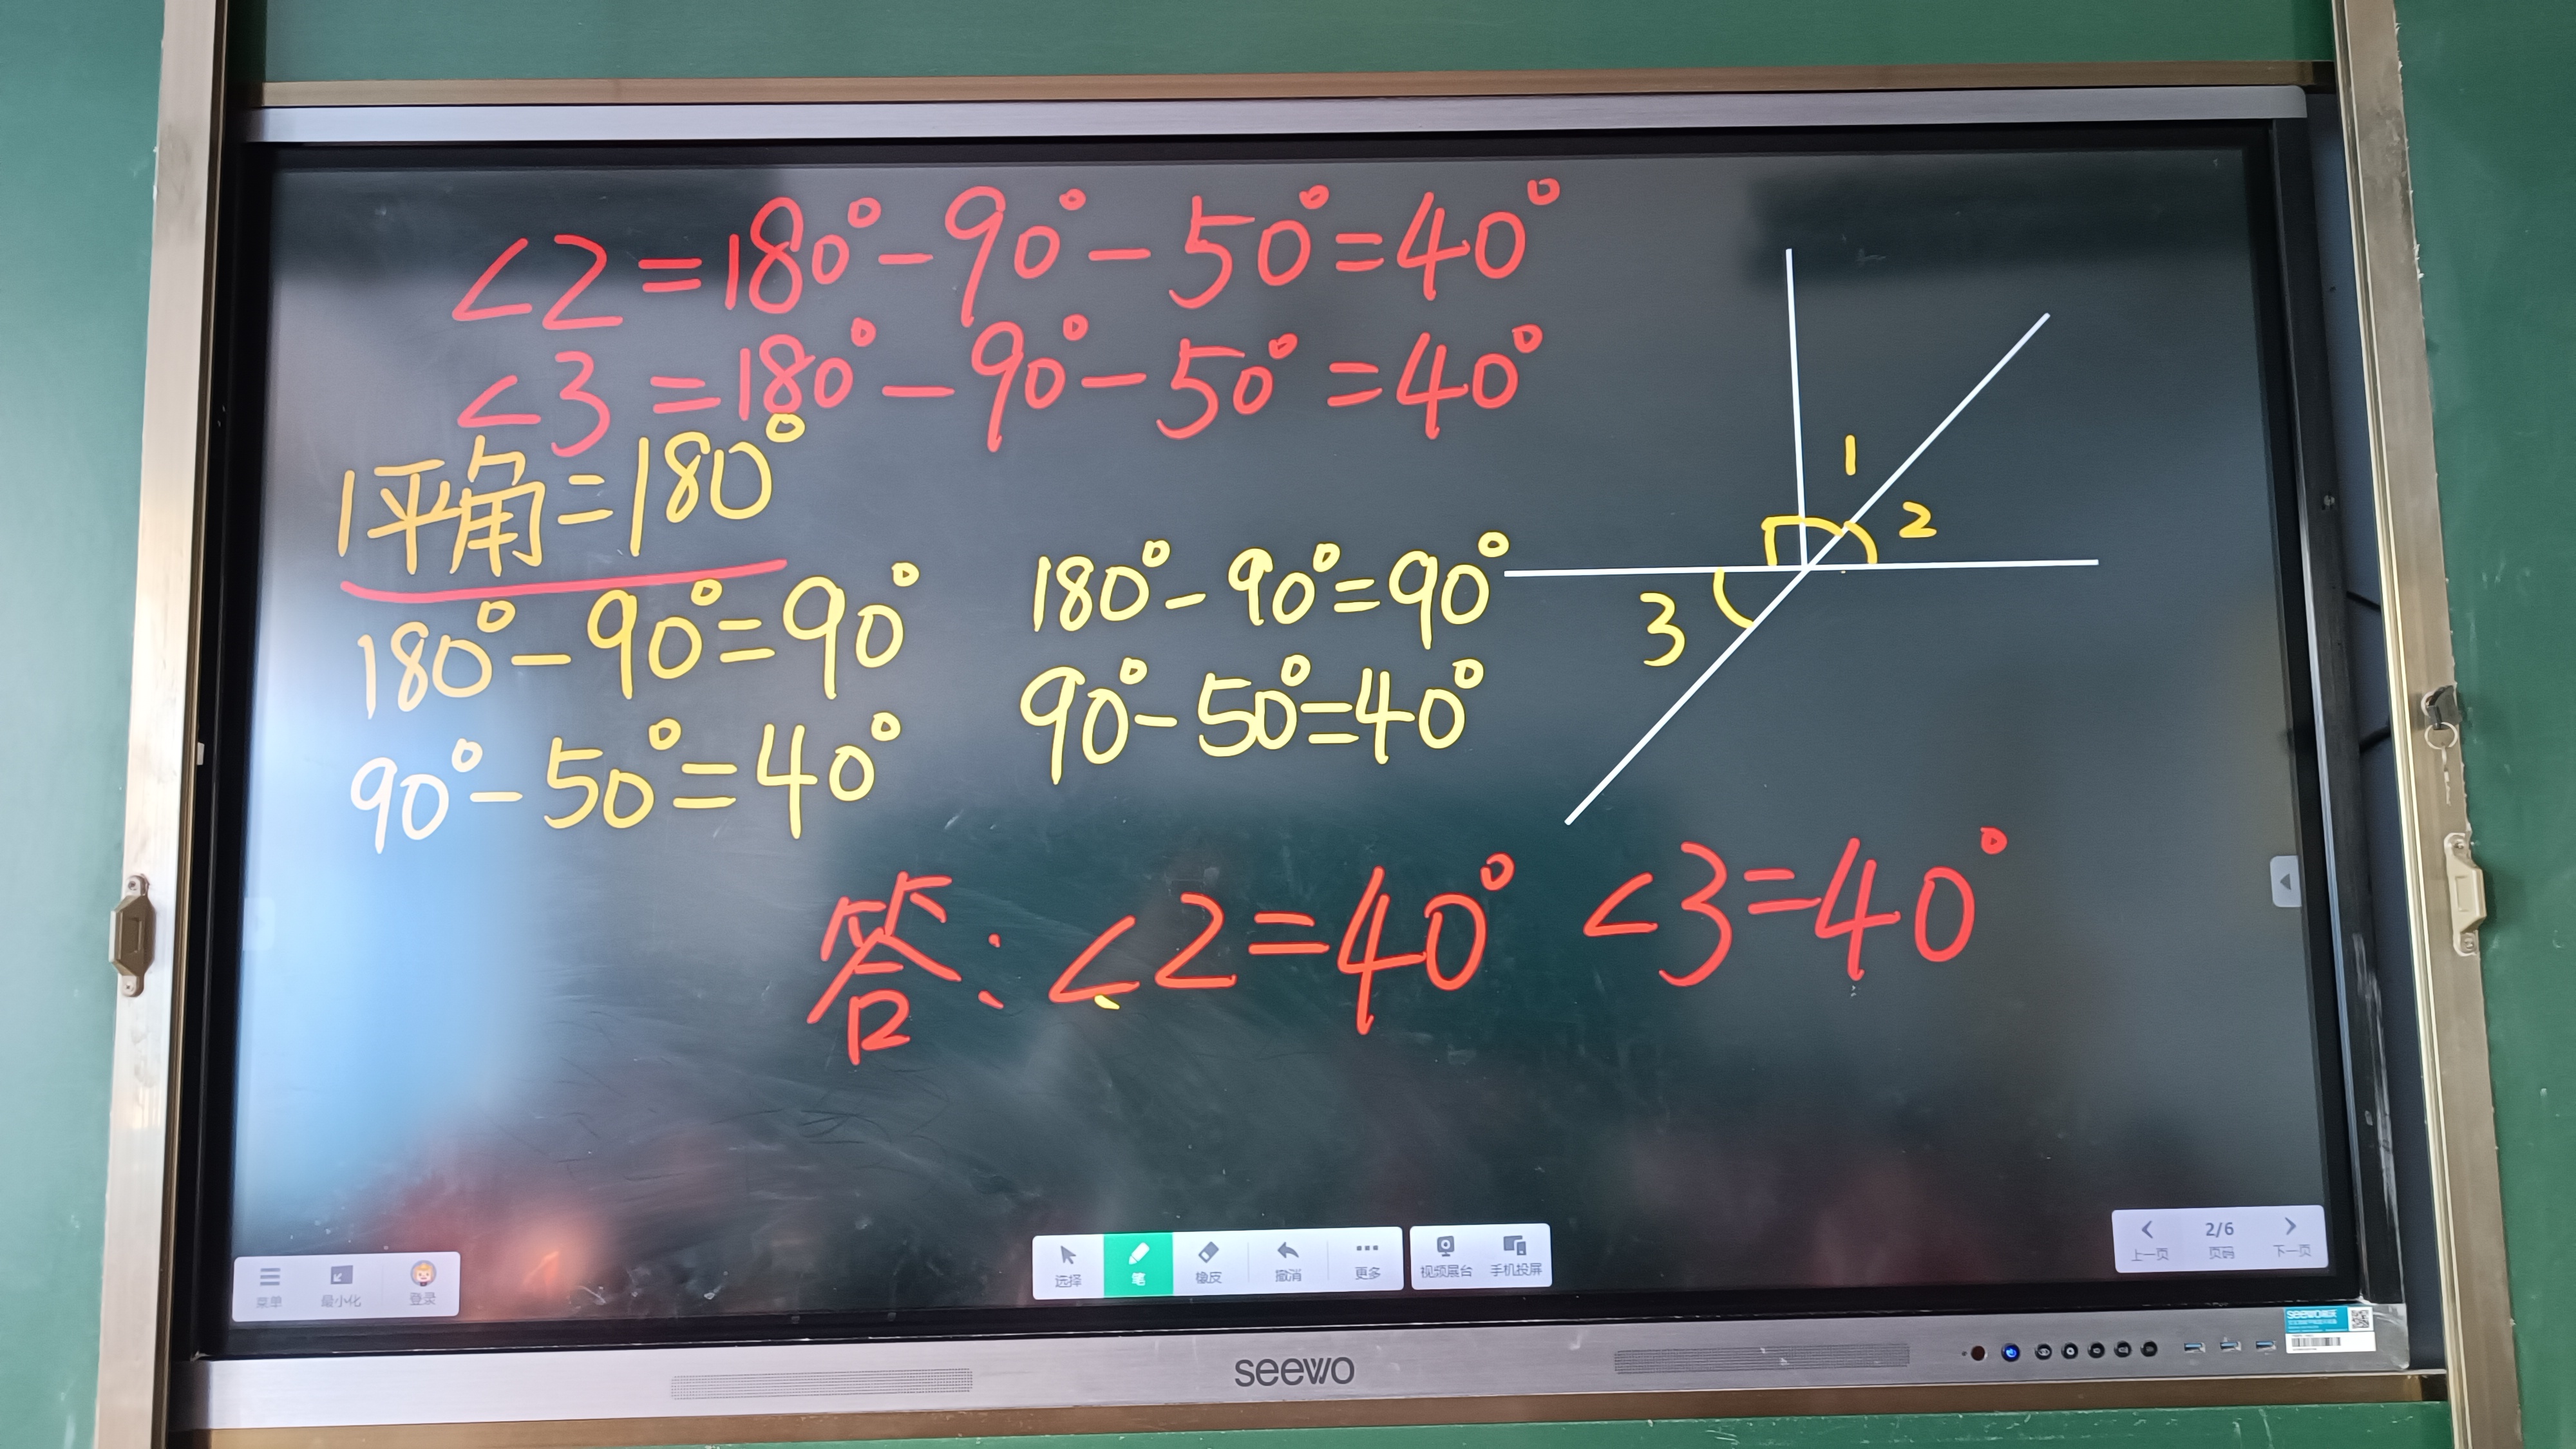 ∠2=180°-90°-50°=40°
∠3=180°-90°-50°=40°
1平角=180°
180°-90°=90°
90°-50°=40°
180°-90°=90°
90°-50°=40°
1
2
3
答:∠2=40° ∠3=40°
菜单 最小化 登录
选择 笔 橡皮 撤消 更多 视频展台 手机投屏
上一页 2/6 页码 下一页
seewo
seewo